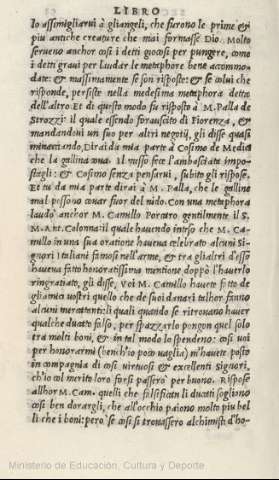 LIBRO
lo assimigliarui à gliangeli, che furono le prime et
piu antiche creature che mai formasse Dio. Molto
seruono anchor cosi i detti giocosi per pungere, come
i detti graui per laudar le metaphore bene accommo-
date: & massimamente se son risposte: & se colui che
risponde, persiste nella medesima metaphora detta
dell'altro. Et di questo modo fu risposto à M. Palla de
Strozzi: il quale essendo forauscito di Fiorenza, &
mandandoui un suo per altri negotij, gli disse quasi
minacciando, Dirai da mia parte à Cosimo de Medici
che la gallina coua. Il messo fece l'ambasciata impo-
stagli: & Cosimo senza pensarui, subito gli rispose,
Et tu da mia parte dirai à M. Palla, che le galline
mal possono couar fuor del nido. Con una metaphora
laudò anchor M. Camillo Porcaro gentilmente il S.
M. Ant. Colonna: il quale hauendo inteso che M. Ca-
millo in una sua oratione haueua celebrato alcuni Si-
gnori italiani famosi nell'arme, & tra glialtri d'esso
haueua fatto honoratissima mentione doppò l'hauerlo
ringratiato, gli disse, Voi M. Camillo hauete fatto de
gliamici uostri quello che de suoi danari talhor fanno
alcuni mercatanti: li quali quando se ritrouano hauer
qualche ducato falso, per spazzarlo pongon quel solo
tra molti boni, & in tal modo lo spendeno: cosi uoi
per honorarmi (bench'io poco uaglia) m'hauete posto
in compagnia di cosi uirtuosi & excellenti signori,
ch'io col merito loro forsi passerò per buono. Rispose
allhor M. Cam. quelli che falsifican li ducati sogliono
cosi ben dorargli, che all'occhio paiono molto piu bel
li che i boni: però se cosi si trouassero alchimisti d'ho-
Ministerio de Educación, Cultura y Deporte